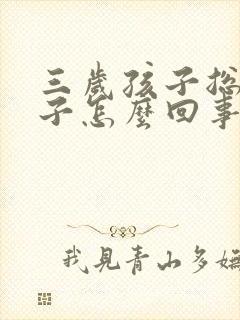 三歲孩子总
子怎麼回事
我見青山多嫵